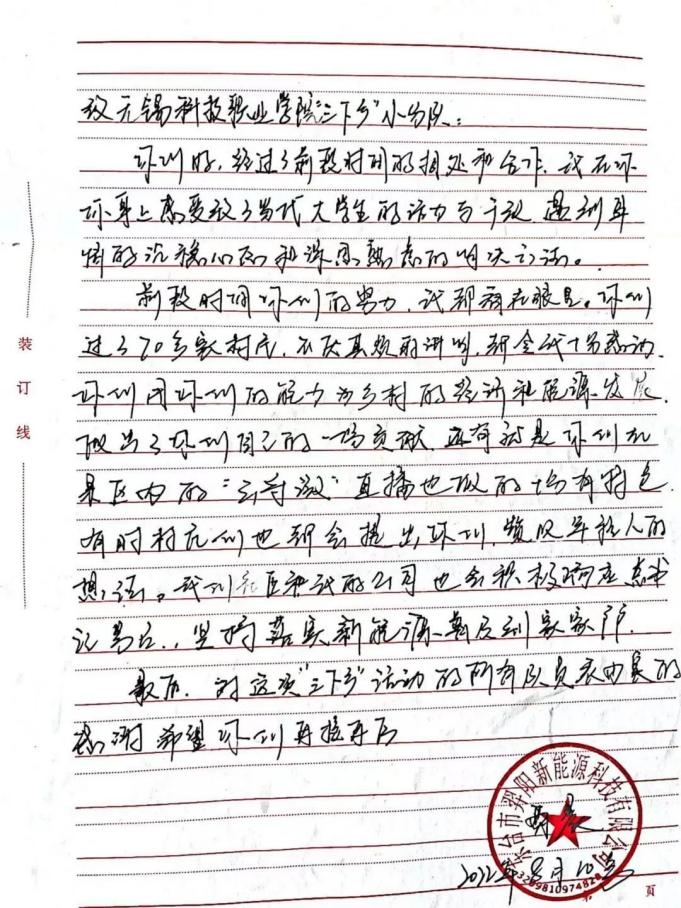 致无锡科技职业学院"三下乡"小分队:
你们好,经过了前段时间的相处和合作,我在你
你身上感受到了当代大学生的活力与干劲 遇到事
情的沉稳心态和深思熟虑的
前段时间你们的努力,我都看在眼里。你们
过了70多家村庄,不厌其烦的讲解,都令我十分感动.
你们用你们的能力为乡村的经济和能源发展.
做出了你们自己的一份贡献.还有就是你们在
景区内的"云"直播也做的十分有特色
有时村民们也都会提出你们,年轻人的
想法。我们社区和我的公司也会积极响应总书
记号召,坚持落实新能源到家家户户.
最后.对这次"三下乡"活动的所有队员表由衷的
感谢 希望你们再接再厉
东台市羿阳新能源科技有限公司
3209810974828
2022年8月10号
第 页
装订线